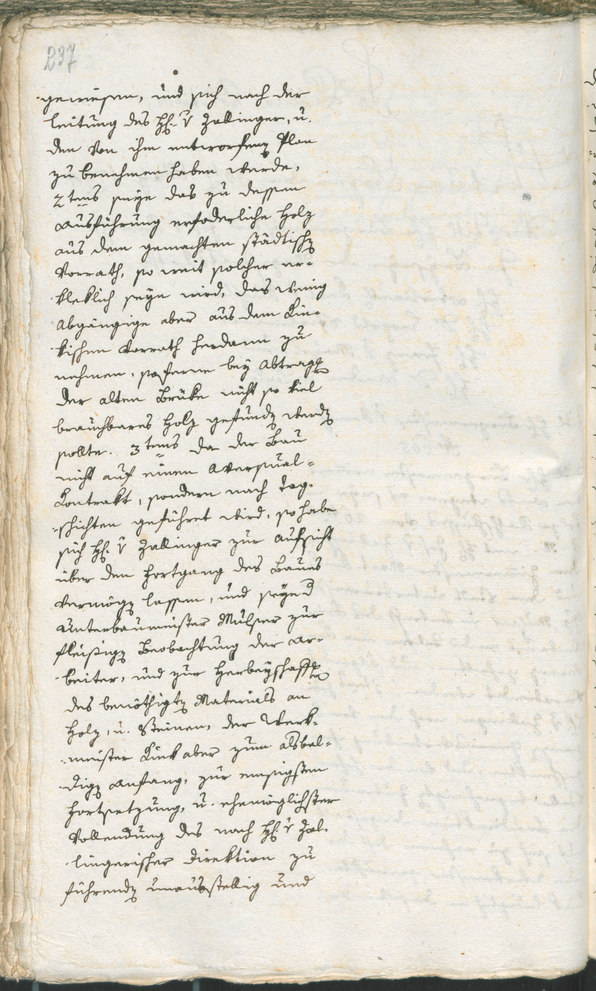 237
gewiesen, und sich nach der
Leitung des H: v Zallinger, u.
den von ihm entworfenen Plan
zu benehmen haben werde,
2tens seye das zu dessen
Ausführung erforderliche Holz
aus dem gemachten städtischen
Vorrath, so weit solcher er-
kleklich seyn wird, das wenig
abgängige aber aus dem Kin-
kischen Vorrath herdann zu
nehmen, soferne bey Abtragung
der alten Brüke nicht so viel
brauchbares Holz gefunden werden
sollte. 3tens da der Bau
nicht auf einen Aversual-
Kontrakt, sondern nach Tag-
schichten geführet wird, so habe
sich H: v Zallinger zur Aufsicht
über den Fortgang des Baues
vermögen lassen, und seye d
Unterbaumeister Mulser zur
fleißigen Beobachtung der Ar-
beiter, und zur Herbeyschaffung
des benöthigten Materials an
Holz, u. Steinen, der Werk-
meister Kink aber zum alsbal-
digen Anfang, zur emsigsten
Fortsetzung, u. ehemöglichster
Vollendung des nach H: v Zal-
lingerischer Direktion zu
führenden unausstellig und